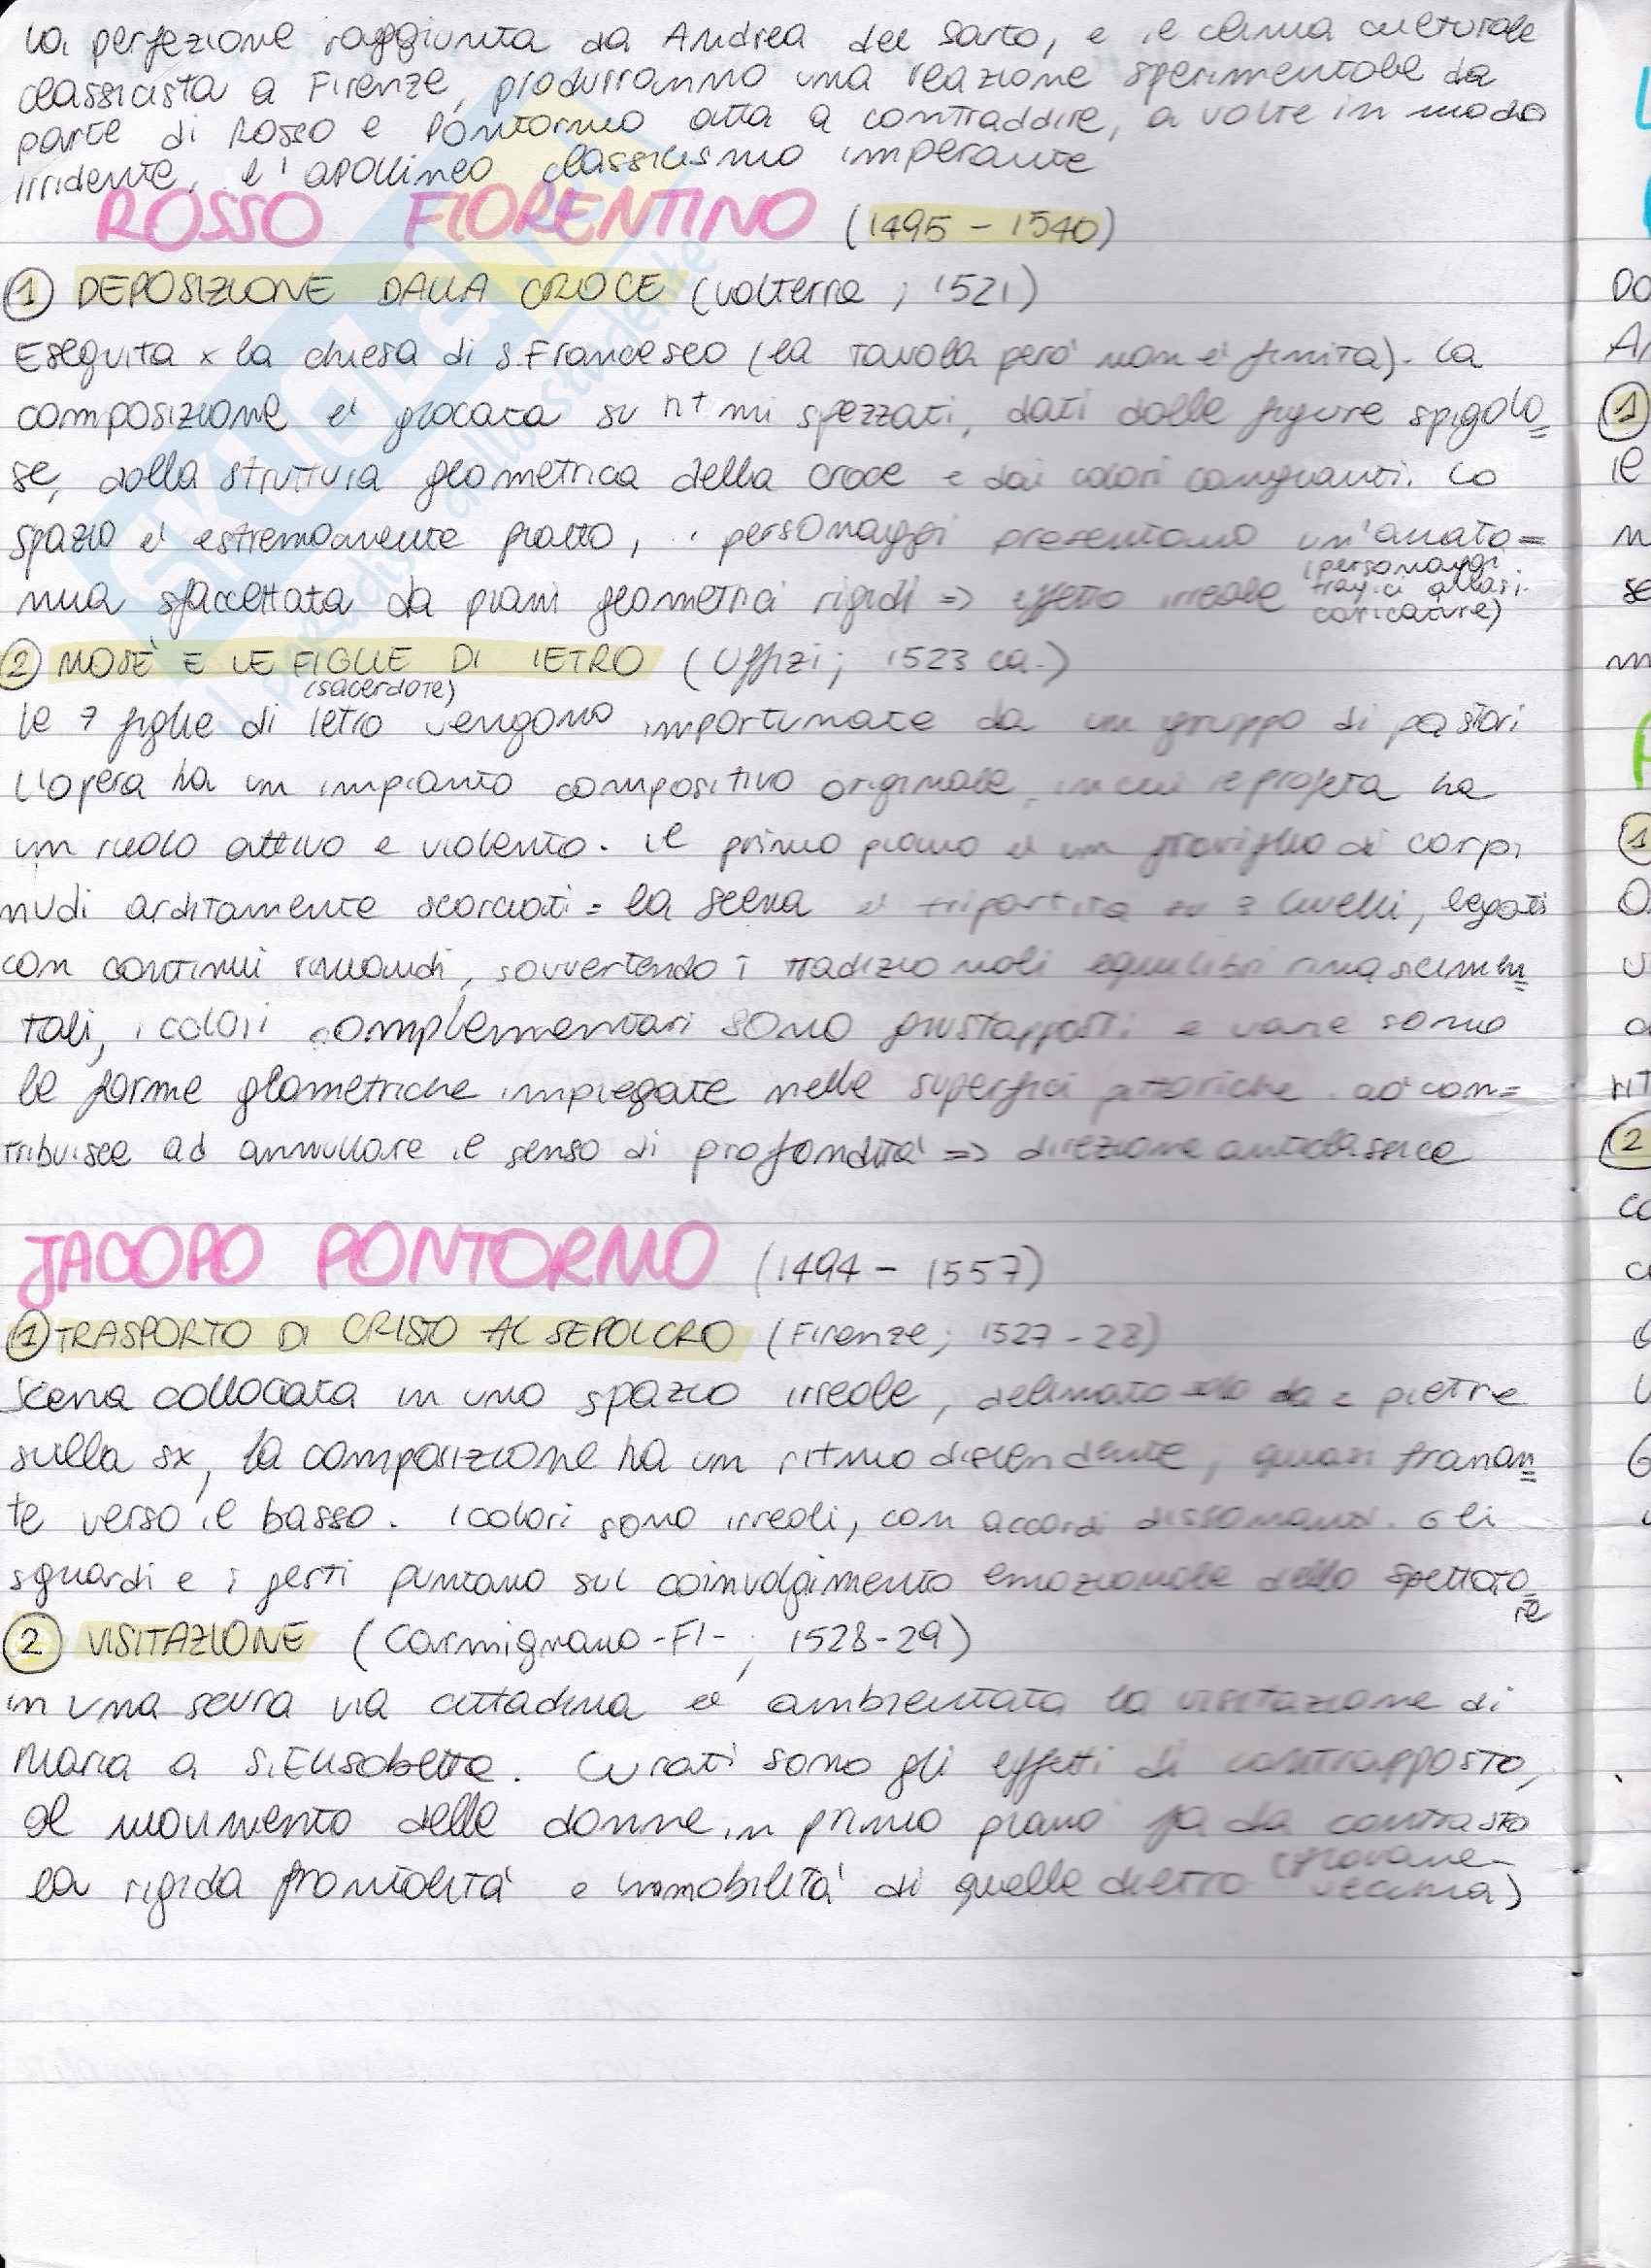 La perfezione raggiunta da Andrea del Sarto, e il clima culturale
classicista a Firenze, produrranno una reazione sperimentale da
parte di Rosso e Pontormo atta a contraddire, a volte in modo
irridente, l'apollineo classicismo imperante
ROSSO FIORENTINO (1495 - 1540)
1 DEPOSIZIONE DALLA CROCE (Volterra; 1521)
Eseguita x la chiesa di S. Francesco (la tavola però non è finita). La
composizione è giocata su r+mi spezzati, dati dalle figure spigolo=
se, dalla struttura geometrica della croce e dai colori cangianti. Lo
spazio è estremamente piatto, i personaggi presentano un'anato=
mia sfaccettata da piani geometrici rigidi => effetto irreale (personaggi
tragici quasi
caricature)
2 MOSÈ E LE FIGLIE DI IETRO (Uffizi; 1523 ca.)
(sacerdote)
Le 7 figlie di Ietro vengono importunate da un gruppo di pastori
L'opera ha un impianto compositivo originale, in cui il profeta ha
un ruolo attivo e violento. Il primo piano è un groviglio di corpi
nudi arditamente scorciati = la scena è tripartita su 3 livelli, legati
con continui rimandi, sovvertendo i tradizionali equilibri rinascimen=
tali, i colori complementari sono giustapposti e varie sono
le forme geometriche impiegate nelle superfici pittoriche. Ciò con=
tribuisce ad annullare il senso di profondità => direzione anticlassica
JACOPO PONTORMO (1494 - 1557)
1 TRASPORTO DI CRISTO AL SEPOLCRO (Firenze; 1527-28)
Scena collocata in uno spazio irreale, delimitato solo da 2 pietre
sulla sx, la composizione ha un ritmo discendente, quasi franan=
te verso il basso. I colori sono irreali, con accordi dissonanti. Gli
sguardi e i gesti puntano sul coinvolgimento emozionale dello spettato=
re
2 VISITAZIONE (Carmignano -FI-; 1528-29)
in una scura via cittadina è ambientata la visitazione di
Maria a S. Elisabetta. Curati sono gli effetti di contrapposto,
al movimento delle donne in primo piano fa da contrasto
la rigida frontalità e immobilità di quelle dietro (giovane-
vecchia)